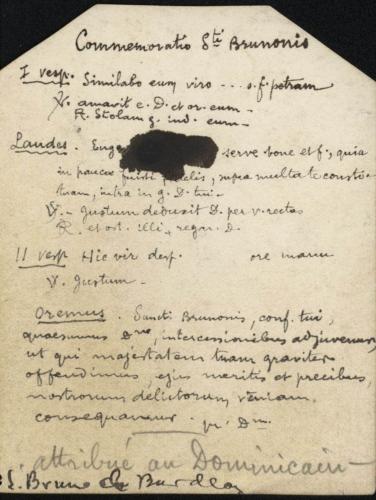 Commemoratio Sti Brunonis
I vesp. Similabo eum viro --- s. f. petram
V. amavit e. D. et or. eum -
R. Stolam g. ind. eum -
Laudes. Euge serve bone et f., quia
in pauca fuisti fidelis, supra multa te consti-
tuam, intra in g. D. tui -
V. - Justum deduxit D. per v. rectas
R. et ost. illi, regn. D.
II vesp. Hic vir desp. ore manu
V. Justum -
Oremus. Sancti Brunonis, conf. tui,
quaesumus Dne, intercessionibus adjuvemur,
ut qui majestatem tuam graviter
offendimus, ejus meritis et precibus,
nostrorum delictorum veniam
consequamur. pr. Dm.
attribué au Dominicain
L. Bruno